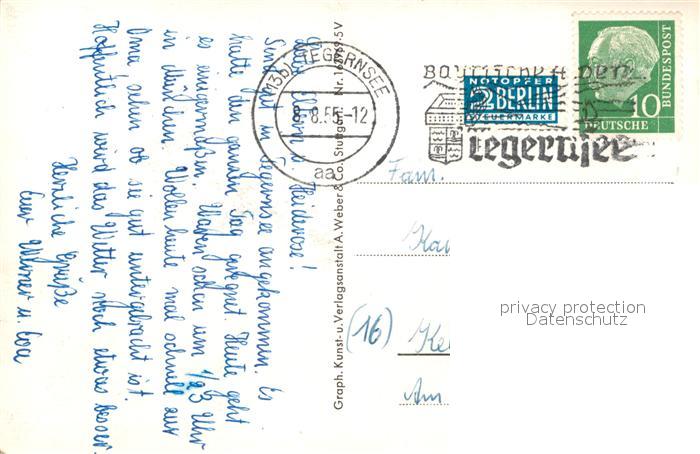 Liebe Eltern u. Heiderose!
Sind gut in Tegernsee angekommen. Es
hatte den ganzen Tag geregnet. Heute geht
es einigermaßen. Waren schon um 1/2 5 Uhr
in München. Wollen heute mal schnell zur
Oma sehen ob sie gut untergebracht ist.
Hoffentlich wird das Wetter noch etwas besser.
Herzliche Grüße
Euer Werner u. Eva
Graph. Kunst- u. Verlagsanstalt A. Weber & Co. Stuttgart Nr. 168969-5 V
(13b) TEGERNSEE
-8.8.55.-12
aa
NOTOPFER
2 BERLIN
STEUERMARKE
tegernsee
10
DEUTSCHE
BUNDESPOST
Fam.
(16)
Am
privacy protection
Datenschutz